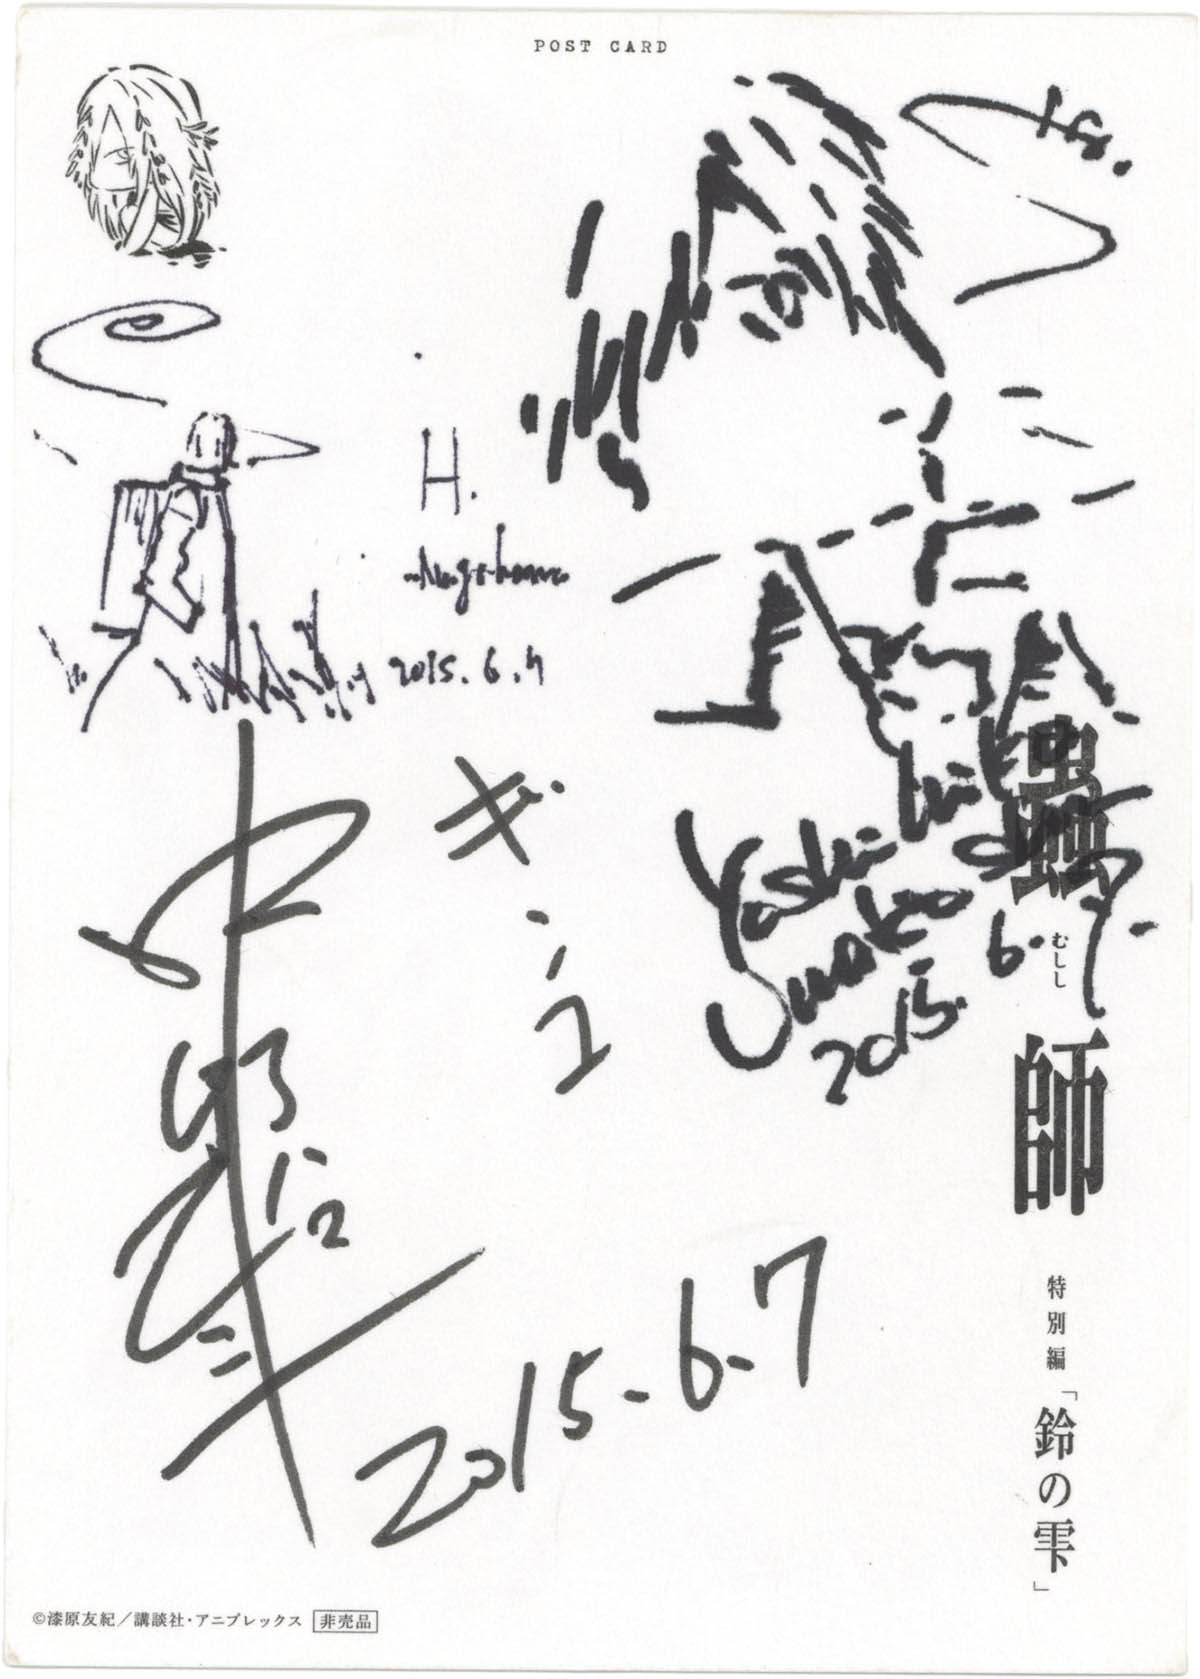 POST CARD
H.
2015.6.7
ギンコ
Yoshihiko
Umakoshi
2015.
6.7
2015.6.7
蟲
むしし
師
特別編
「鈴の雫」
©漆原友紀／講談社・アニプレックス 非売品